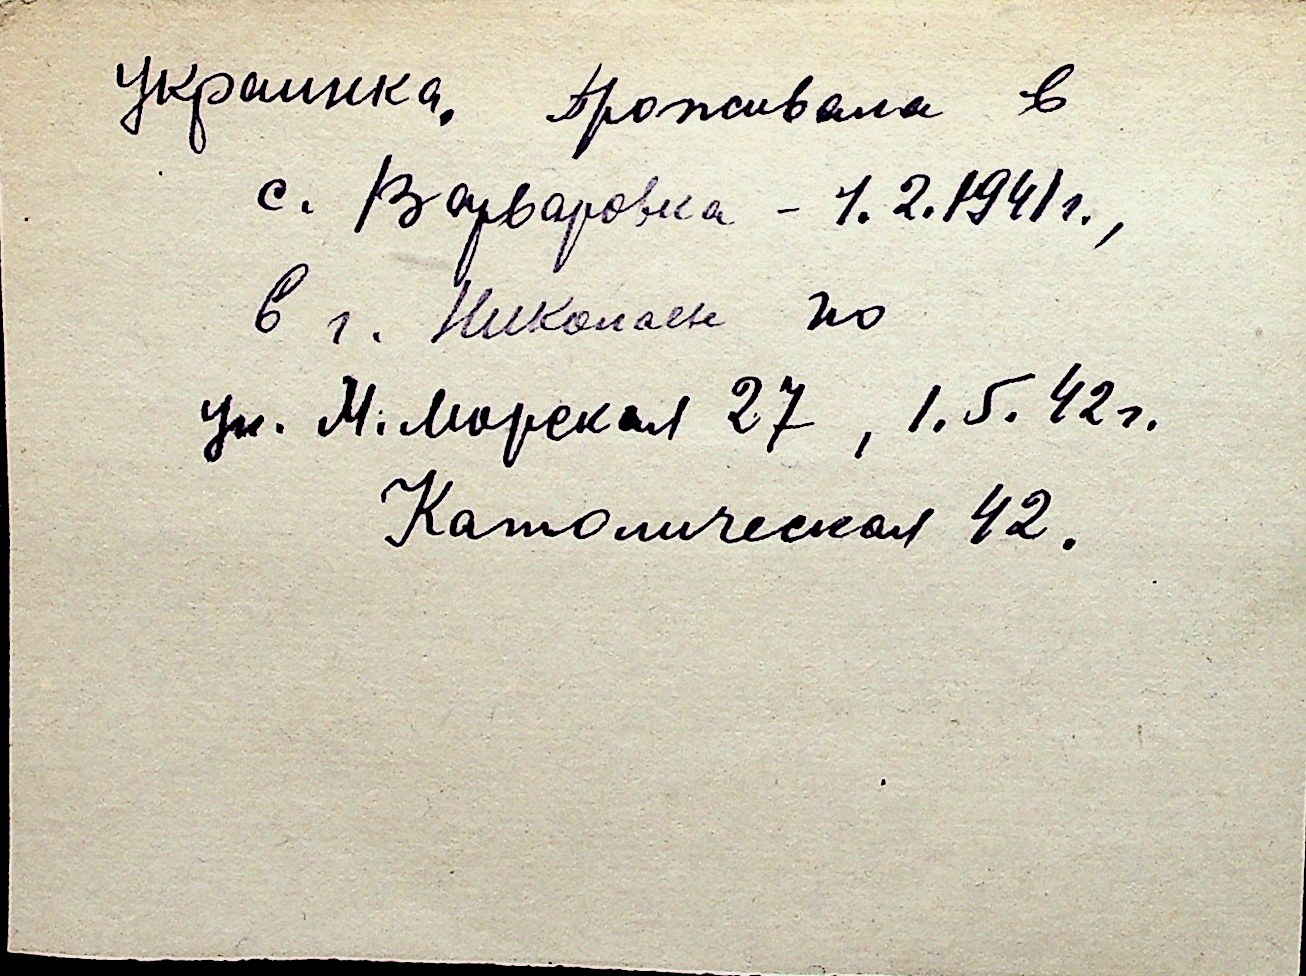 Украинка. Проживала в
с. Варваровка - 1.2.1941г.,
в г. Николаен по
ул. М. Морская 27, 1.5.42г.
Католическая 42.